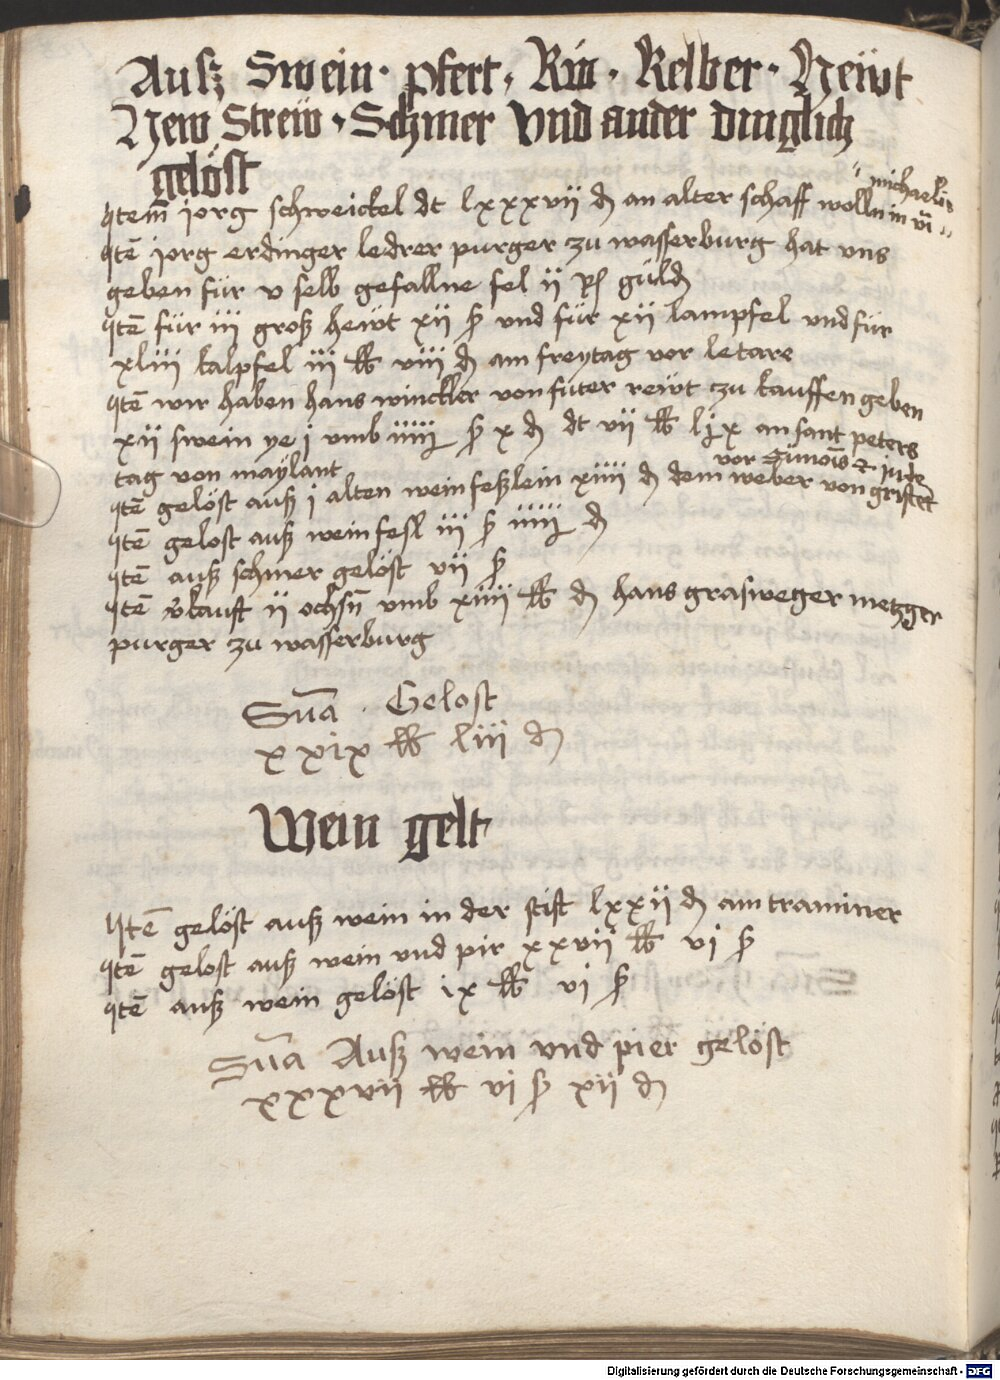 Ausz Swein · pfert · Rin · Kelber · Heiwt
Hew Streiw · Schmer Vnd ander dinglich
gelöst
Item jorg schweickel dt lxxxvii d an alter schaff wolln in vi
" michaelis "
Itē jorg erdinger ledrer purger zu wasserburg hat vns
geben für v selb gefallne fel ii guld
Itē für iii grosz heiwt xii ß vnd für xii lampfel vnd für
xliii kalpfel iii lb viii d am freytag vor letare
Itē wir haben hans winckler von füter reiwt zu kauffen geben
xii swein ye j vmb iiiii ß x d dt vii lb lix an sant peters
tag von maylant
Itē gelöst ausz j alten weinfeszlein xiiii d dem weber von gristet
vor Simōis & jude
Itē gelost ausz weinfesl iii ß iiiii d
Itē ausz schmer gelöst vii ß
Itē v̄kauft ii ochsn̄ vmb xiiii lb d hans grasweger metzger
purger zu wasserburg
Sūa · Gelost
xxix lb liii d
Wein gelt
Itē gelöst ausz wein in der stift lxxii d am traminer
Itē gelost ausz wein vnd pir xxvii lb vi ß
Itē ausz wein gelöst ix lb vi ß
Sūa Ausz wein vnd pier gelöst
xxxvii lb vi ß xii d
Digitalisierung gefördert durch die Deutsche Forschungsgemeinschaft - DFG